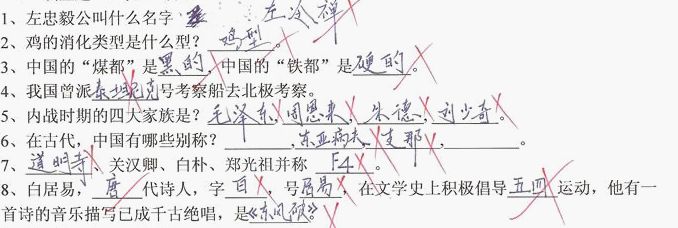 1、左忠毅公叫什么名字 左冷禅
2、鸡的消化类型是什么型?鸡型。
3、中国的“煤都”是黑的,中国的“铁都”是硬的。
4、我国曾派泰坦尼克号考察船去北极考察。
5、内战时期的四大家族是?毛泽东,周恩来,朱德,刘少奇。
6、在古代,中国有哪些别称?,东亚病夫、支那,。
7、道明寺、关汉卿、白朴、郑光祖并称 F4。
8、白居易,唐代诗人,字白,号居易,在文学史上积极倡导五四运动,他有一
首诗的音乐描写已成千古绝唱,是《东风破》。